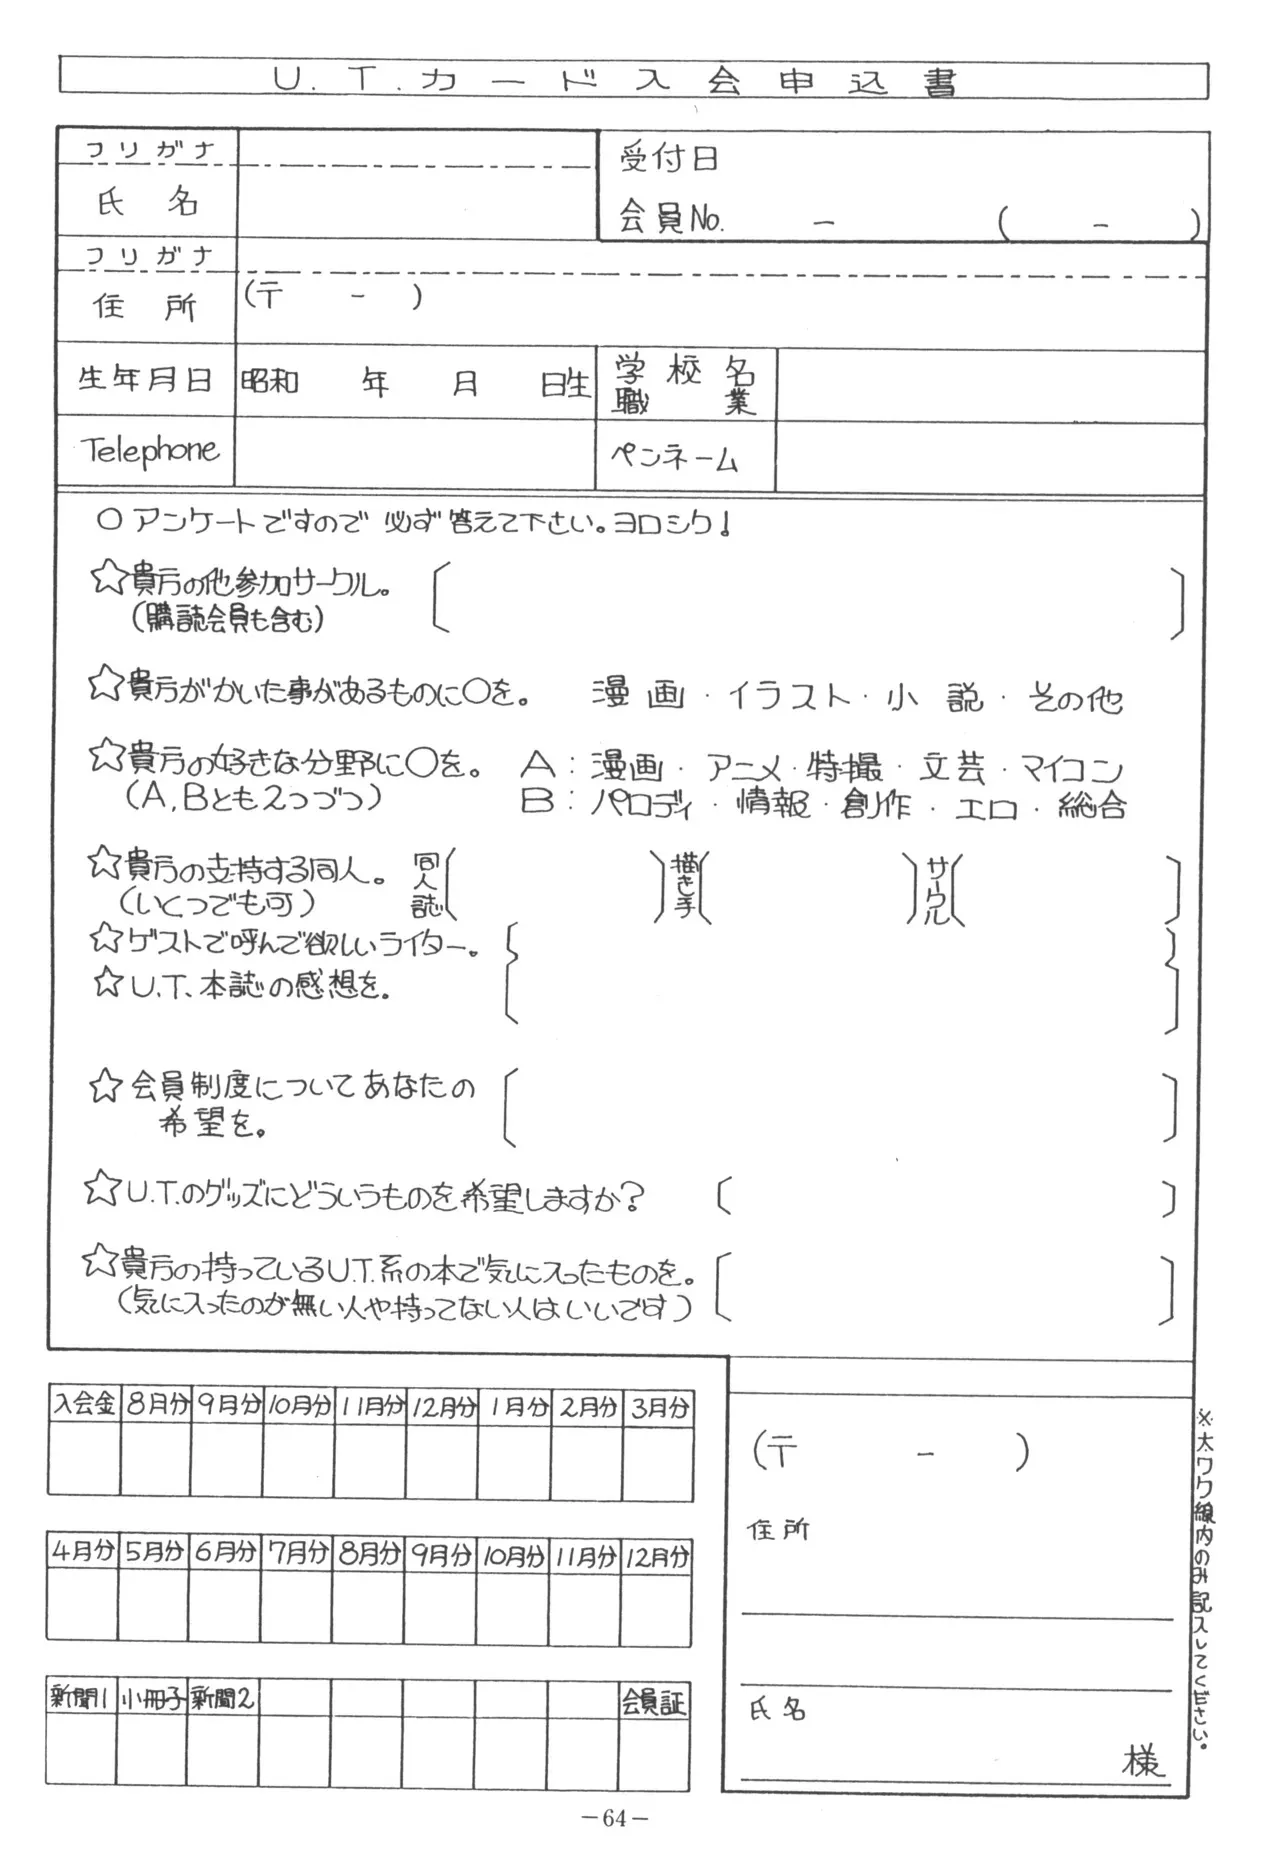 U.T.カード入会申込書
フリガナ
氏名
受付日
会員No. - ( - )
フリガナ
住所
(〒 - )
生年月日
昭和 年 月 日生
学校名
職業
Telephone
ペンネーム
○アンケートですので必ず答えて下さい。ヨロシク!
☆貴方の他参加サークル。〔 〕
(購読会員も含む)
☆貴方がかいた事があるものに○を。 漫画・イラスト・小説・その他
☆貴方の好きな分野に○を。 A:漫画・アニメ・特撮・文芸・マイコン
(A,Bとも2つづつ) B:パロディ・情報・創作・エロ・総合
☆貴方の支持する同人。 同人誌( )描き手( )サークル( 〕
(いくつでも可)
☆ゲストで呼んで欲しいライター。
☆U.T.本誌の感想を。
☆会員制度についてあなたの
希望を。
☆U.T.のグッズにどういうものを希望しますか?〔 〕
☆貴方の持っているU.T.系の本で気に入ったものを。
(気に入ったのが無い人や持ってない人はいいです)
入会金 8月分 9月分 10月分 11月分 12月分 1月分 2月分 3月分
4月分 5月分 6月分 7月分 8月分 9月分 10月分 11月分 12月分
新聞1 小冊子 新聞2 会員証
(〒 - )
住所
氏名
様
※太ワク線内のみ記入してください。
-64-